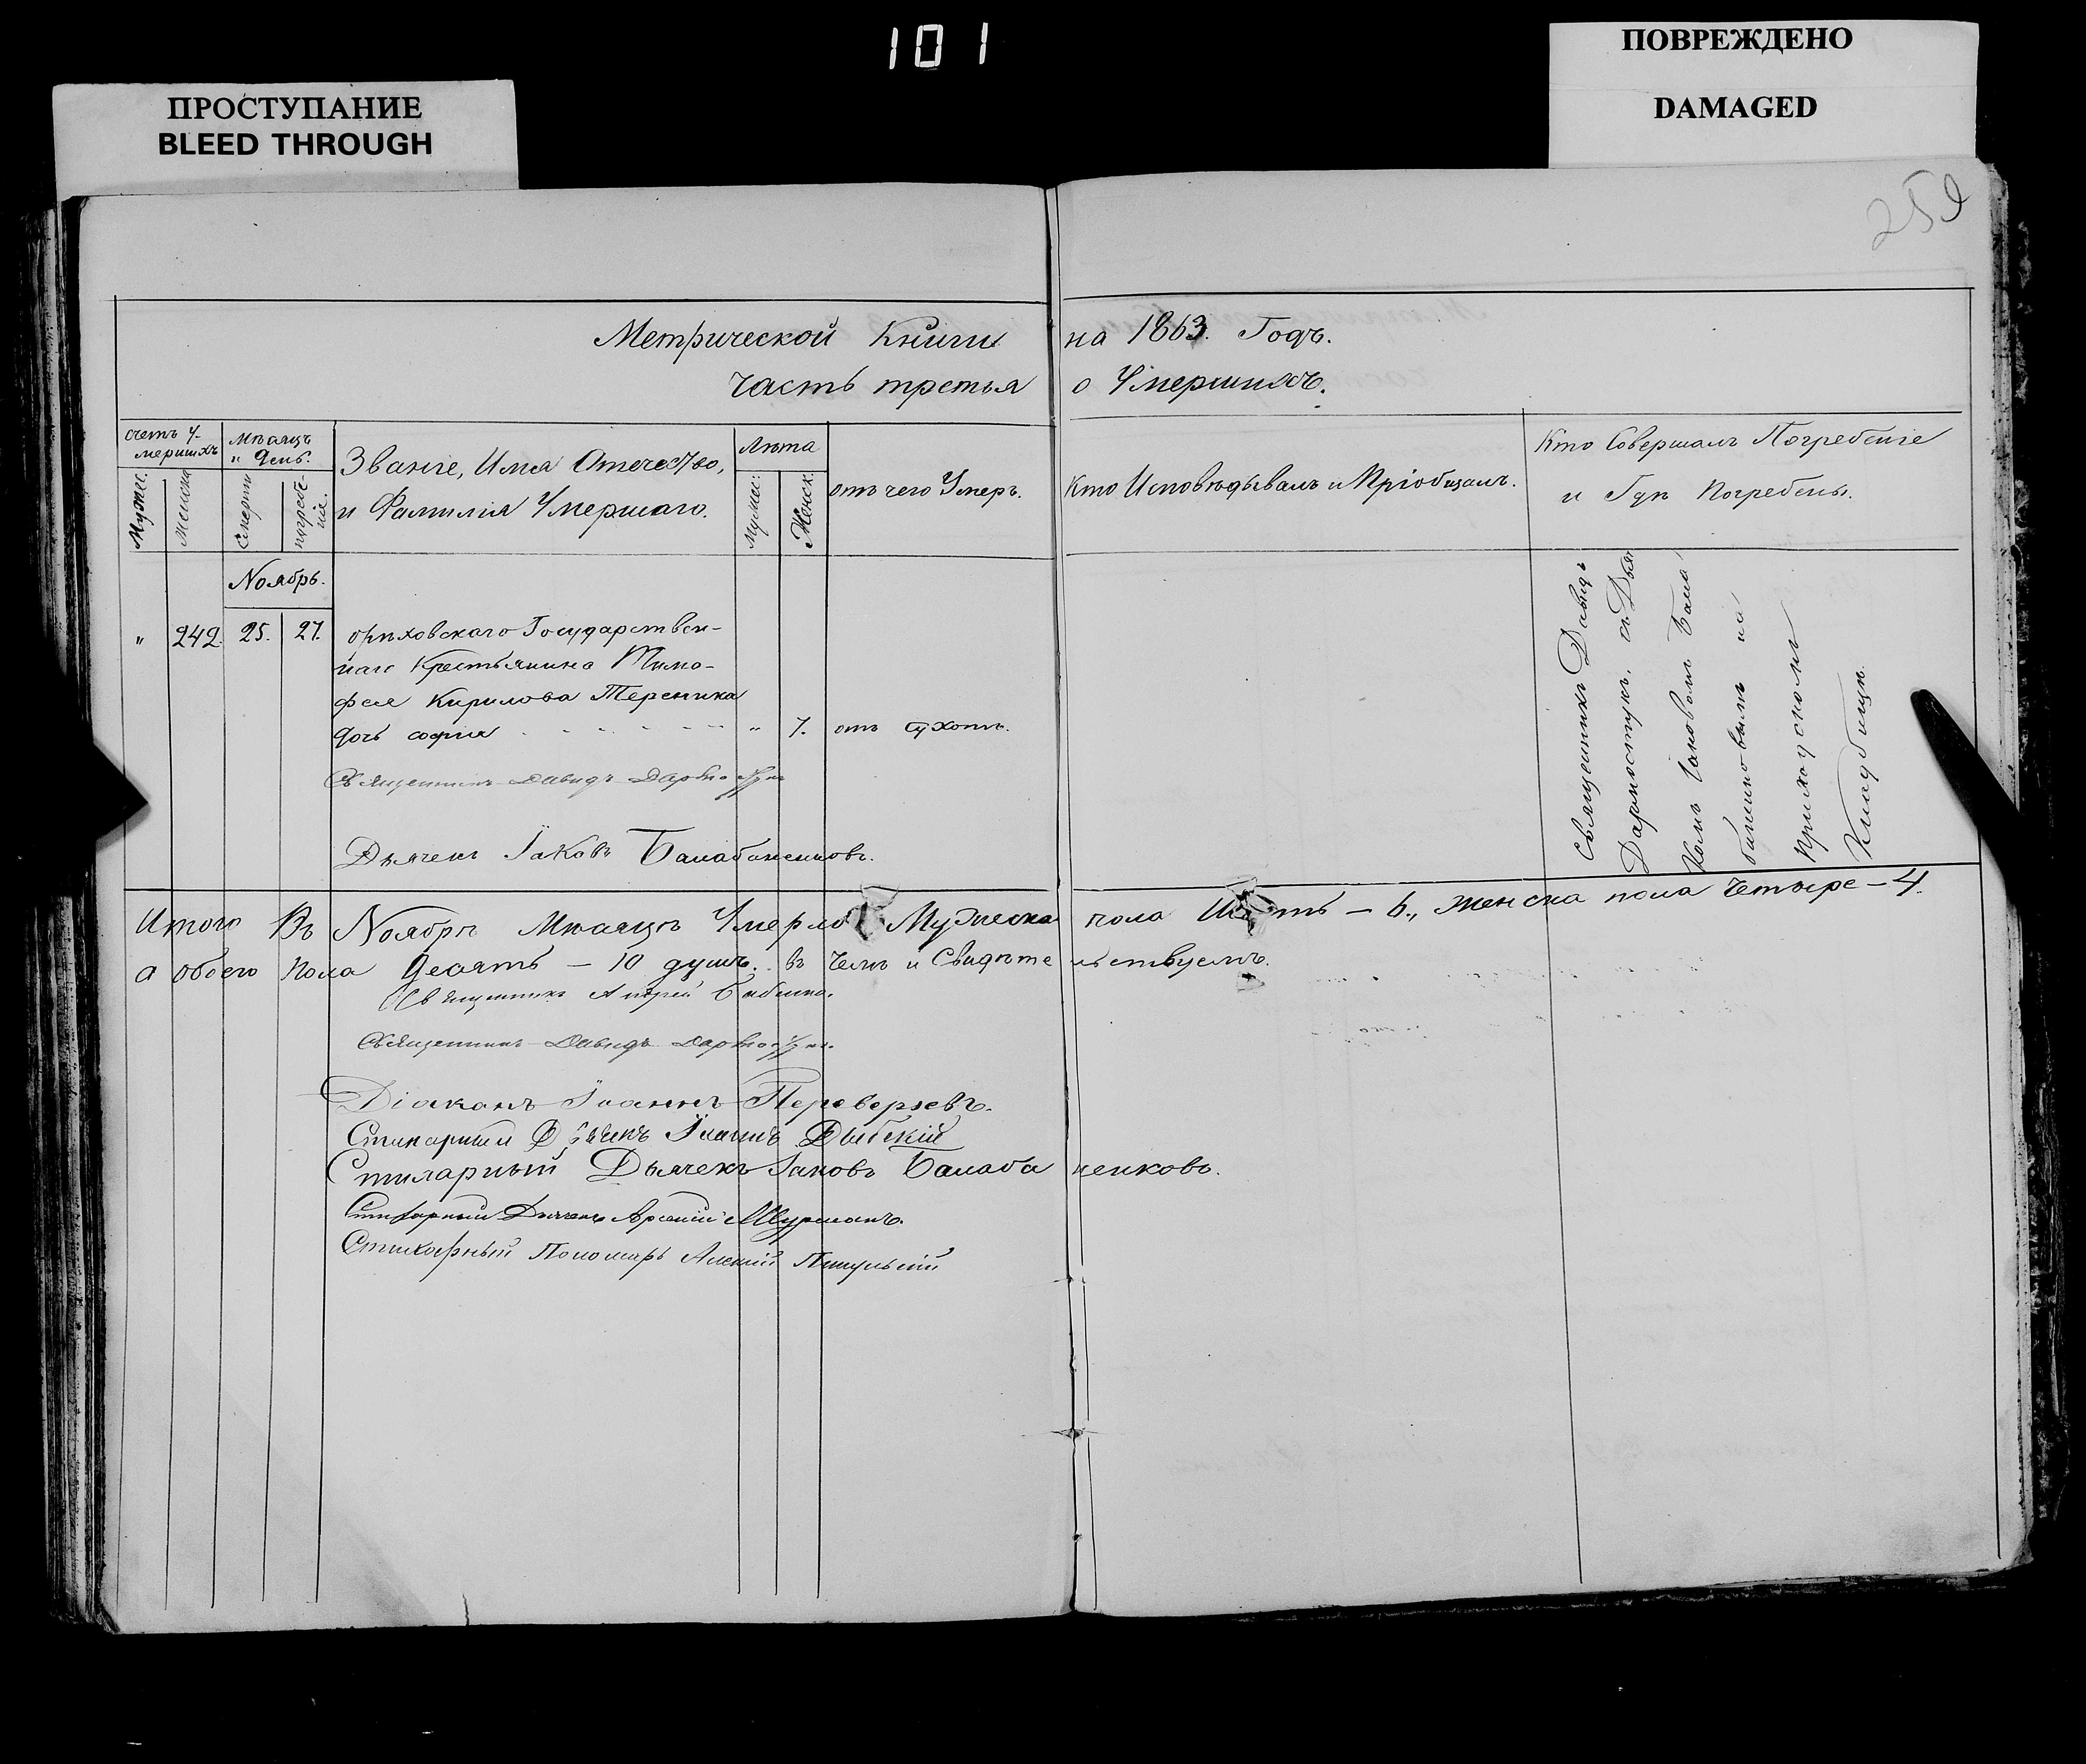 101
ПОВРЕЖДЕНО
DAMAGED
ПРОСТУПАНИЕ
BLEED THROUGH
259
Метрической Книги на 1863. Годъ.
часть третья о Умершихъ.
счетъ у-
мершихъ
Мѣсяцъ
и День.
Званіе, Имя Отечество,
и Фамилія Умершаго.
Лѣта
отъ чего Умеръ.
Кто Исповѣдывалъ и Пріобщалъ.
Кто Совершалъ Погребеніе
и Гдѣ Погребены.
Мужес.
Женска
Смерти
погребе-
нія.
Мужес:
Женск:
Ноябрь.
" 242. 25. 27. орѣховскаго Государствен-
наго Крестьянина Тимо-
фея Кирилова Тереника
дочь софия - - - - - - " 7. отъ сухотъ.
Священникъ Давидъ
Дьячекъ Іаковъ Балабаненковъ.
Священникъ Давидъ
съ Дья
комъ Іаковомъ Бала
баненковымъ на
приходскомъ
Кладбищѣ.
Итого Въ Ноябрѣ Мѣсяцѣ Умерло Мужеска пола Шесть - 6., женска пола Четыре - 4.
а обоего пола Десять - 10 душъ. въ чемъ и Свидѣтельствуемъ.
Священникъ Андрей
Священникъ Давидъ
Діаконъ Іоаннъ Переверзевъ.
Дьячекъ Іоаннъ
Стихарный Дьячекъ Іаковъ Балабаненковъ.
Стихарный Дьячекъ Арсеній
Стихарный Пономарь Алексій